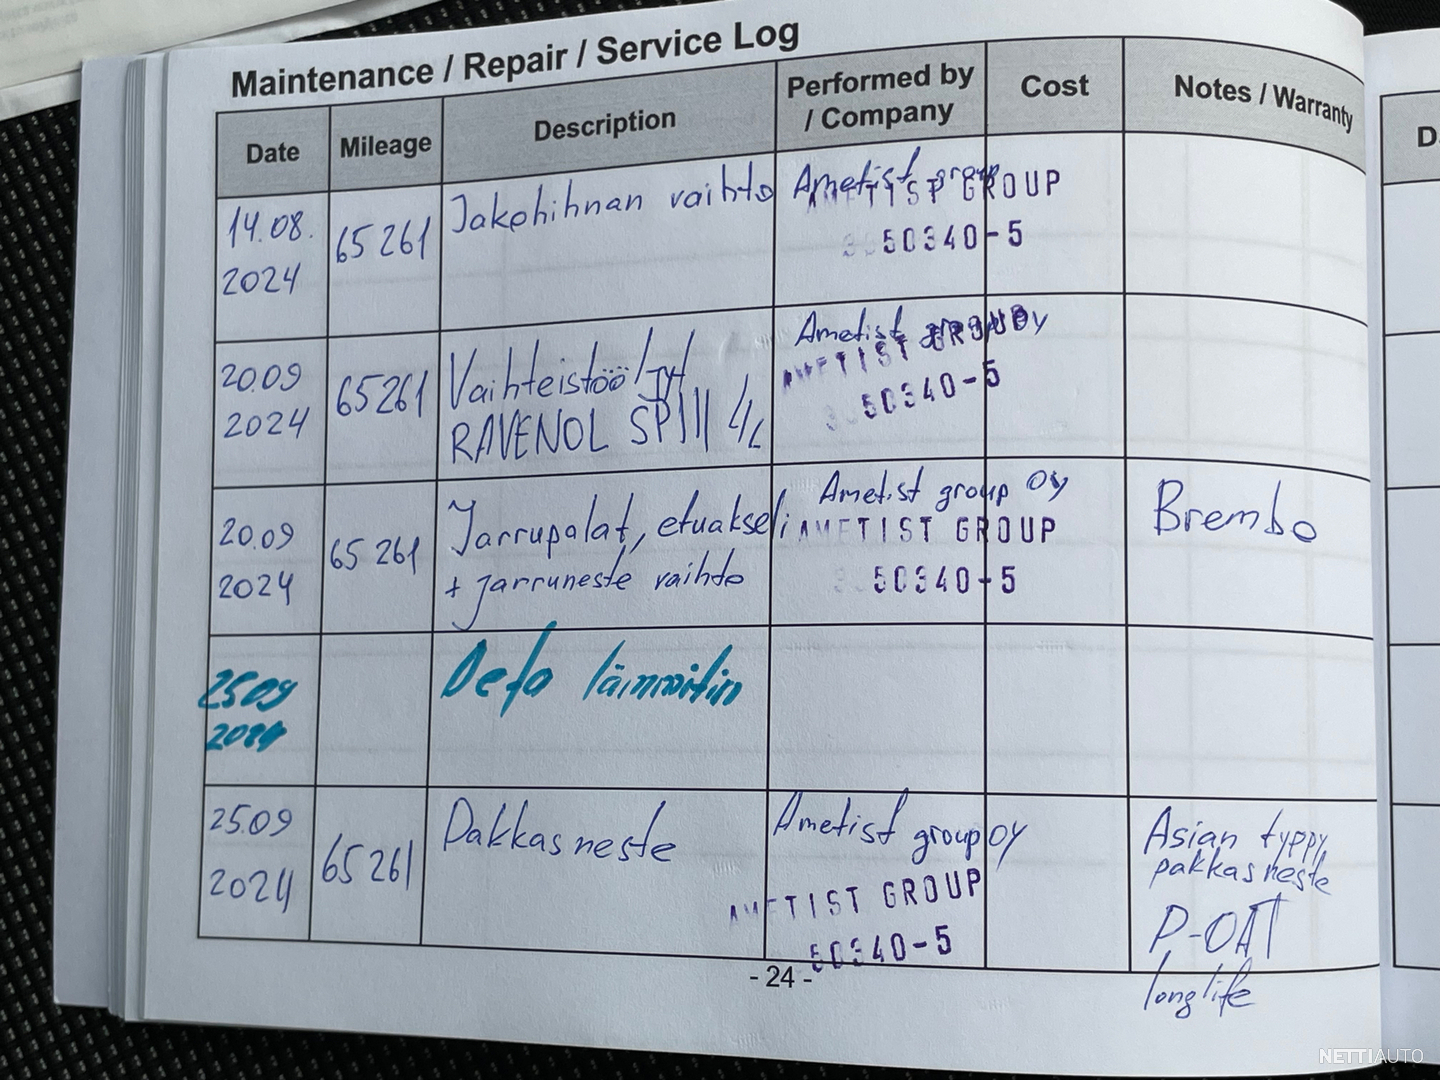 Maintenance / Repair / Service Log
Date Mileage Description Performed by / Company Cost Notes / Warranty
14.08. 2024
65 261
Jakohihnan vaihto
Ametist group
AMETIST GROUP
50340-5
20.09 2024
65261
Vaihteistoöljyt
RAVENOL SPIII 4L
Ametist group oy
AMETIST GROUP
50340-5
20.09 2024
65 261
Jarrupalat, etuakseli
+ jarruneste vaihto
Ametist group oy
AMETIST GROUP
50340-5
Brembo
25 09
2024
Defa lämmitin
25.09
2024
65 261
Pakkasneste
Ametist group oy
AMETIST GROUP
50340-5
Asian tyyppy
pakkasneste
P-OAT
longlife
- 24 -
NETTIAUTO